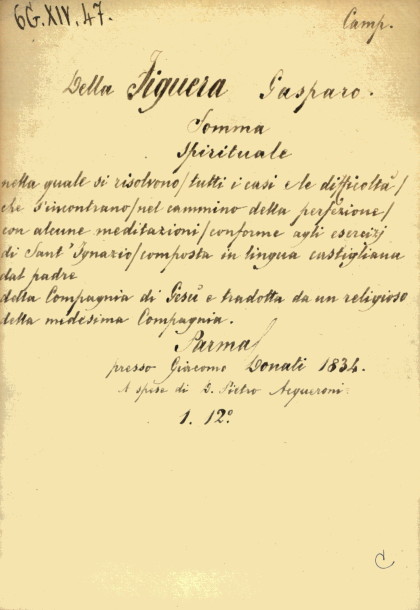 6G.XIV.47.
Camp.
Della Figuera Gasparo.
Somma
Spirituale
nella quale si risolvono/tutti i casi e le difficoltà/
che s'incontrano/nel cammino della perfezione/
con alcune meditazioni/conforme agli esercizj
di Sant'Ignazio/composta in lingua castigliana
dal padre
della Compagnia di Gesù e tradotta da un religioso
della midesima Compagnia.
Parma/
presso Giacomo Donati 1834.
A spese di G. Pietro
1. 12º
C